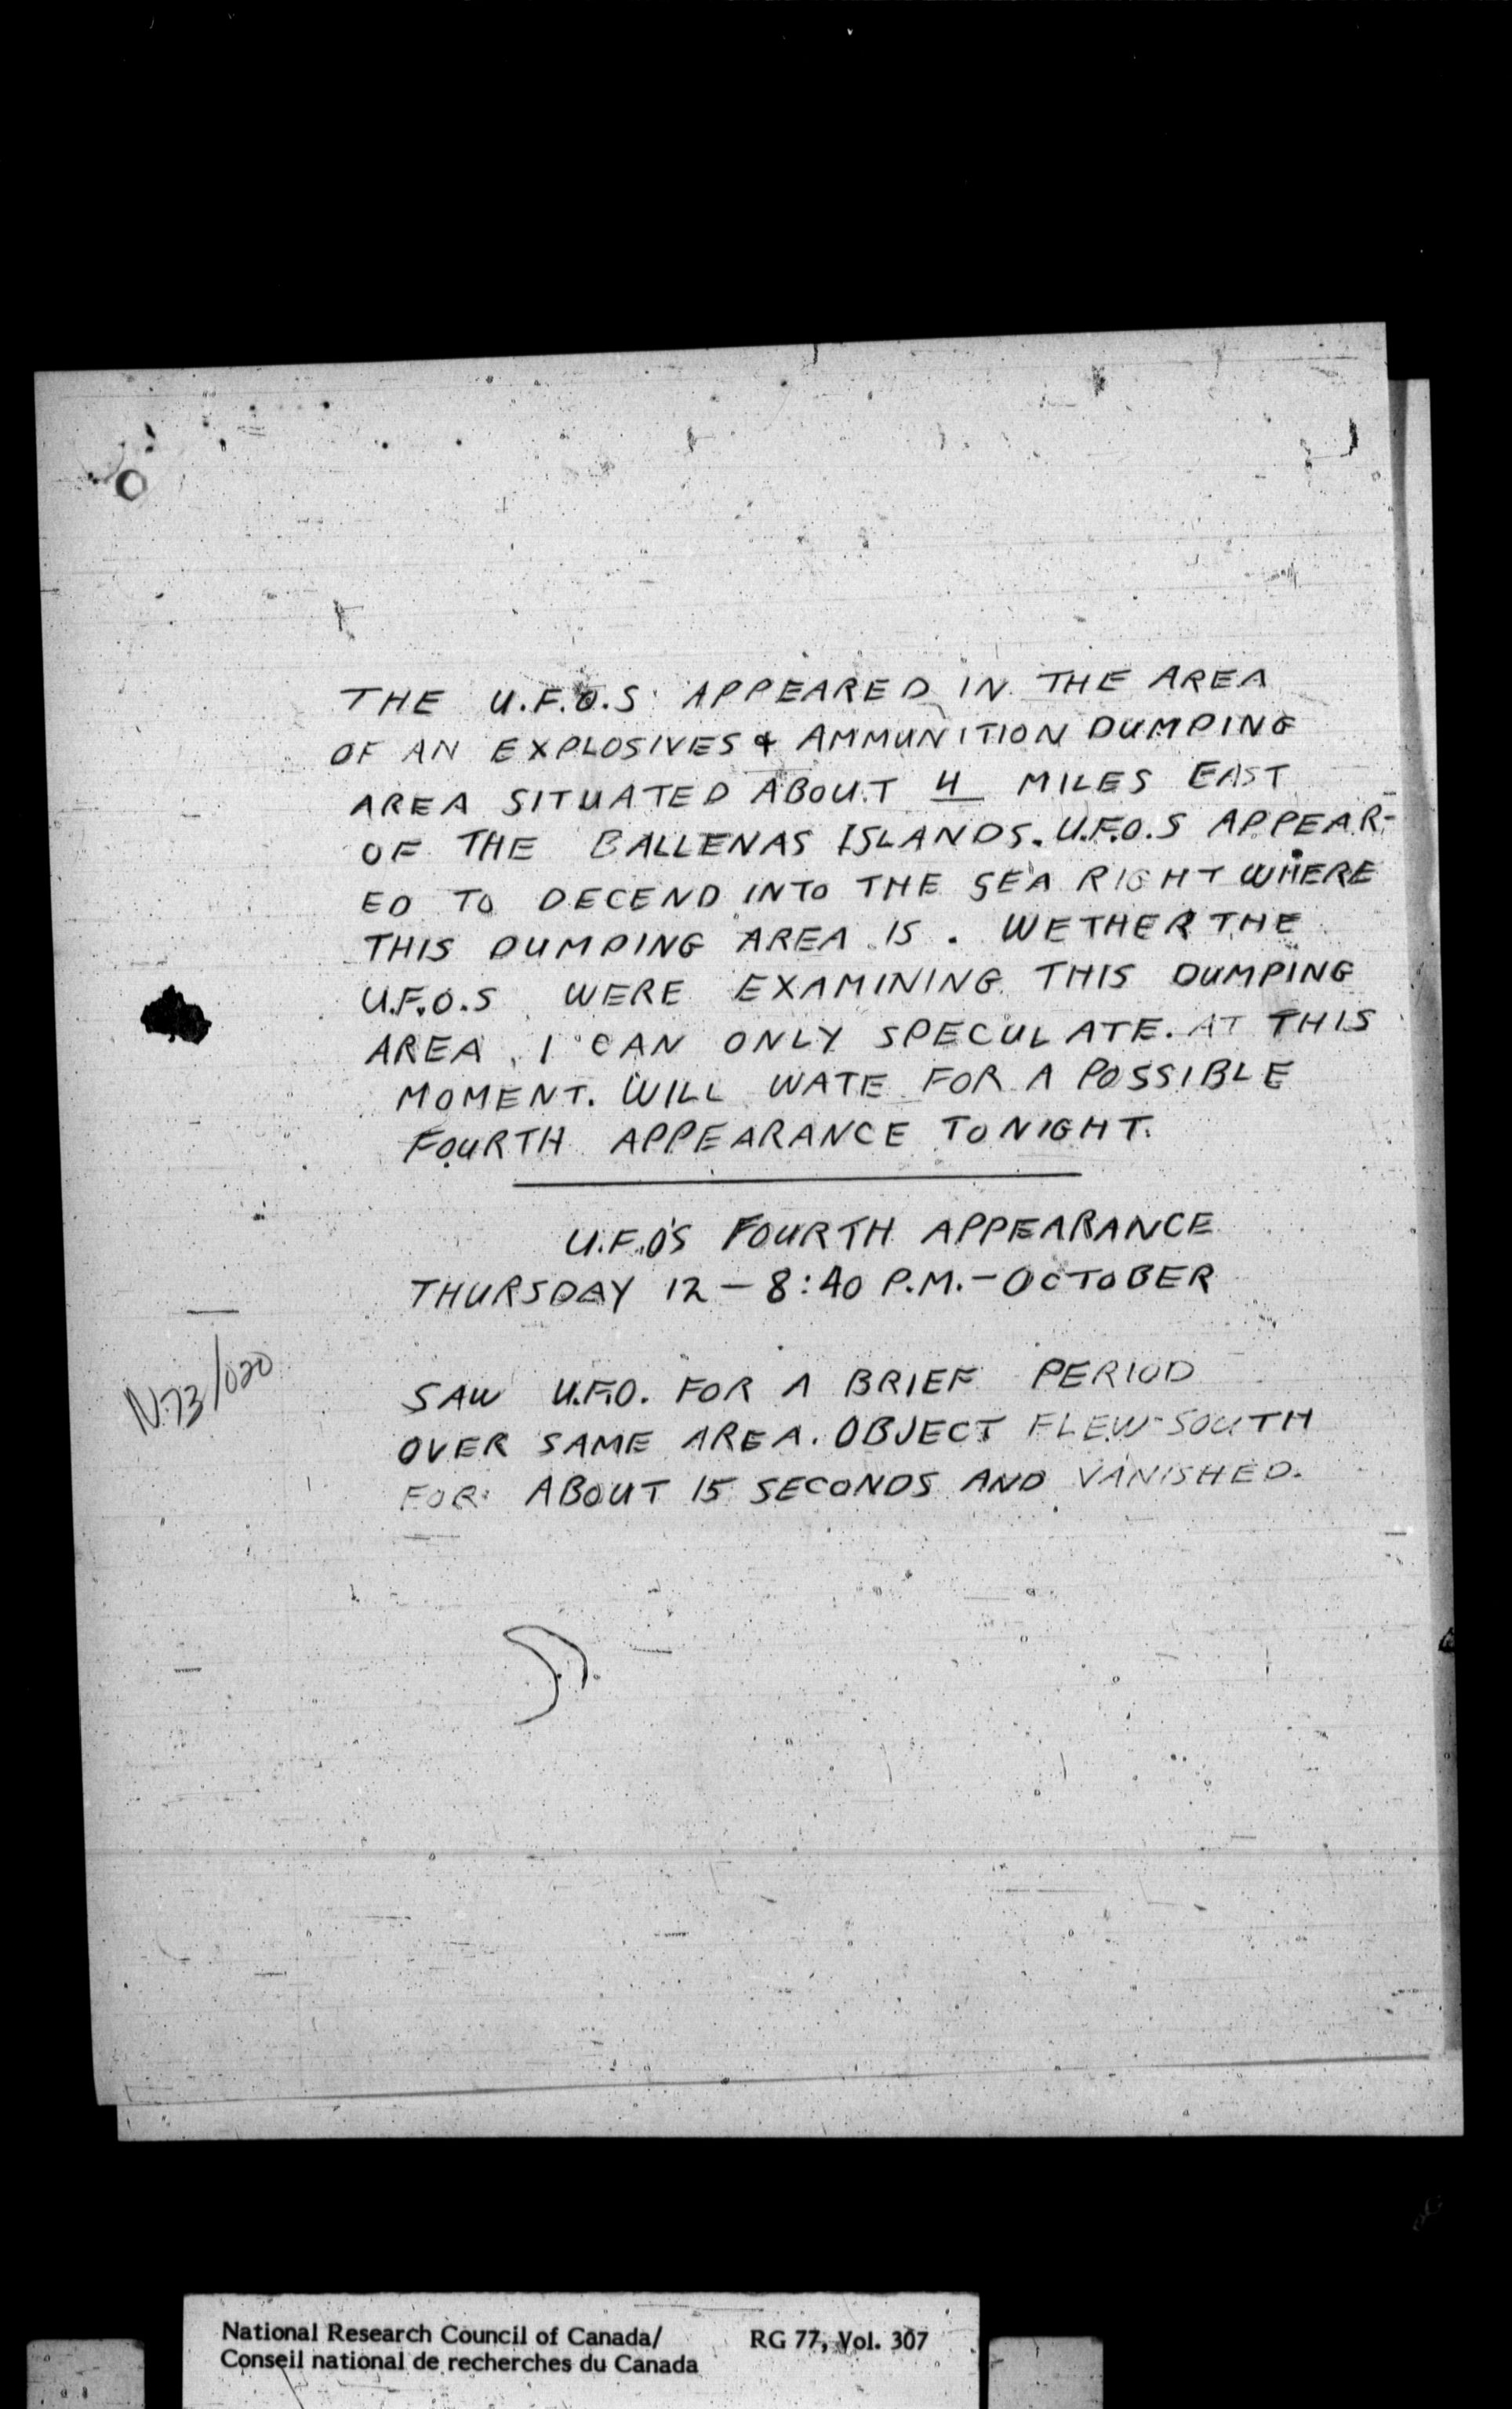 THE U.F.O.S APPEARED IN THE AREA
OF AN EXPLOSIVES & AMMUNITION DUMPING
AREA SITUATED ABOUT 4 MILES EAST
OF THE BALLENAS ISLANDS. U.F.O.S APPEAR-
ED TO DECEND INTO THE SEA RIGHT WHERE
THIS DUMPING AREA IS. WETHER THE
U.F.O.S WERE EXAMINING THIS DUMPING
AREA, I CAN ONLY SPECULATE. AT THIS
MOMENT. WILL WATE FOR A POSSIBLE
FOURTH APPEARANCE TONIGHT.
U.F.O'S FOURTH APPEARANCE
THURSDAY 12 – 8:40 P.M. – OCTOBER
N73/020
SAW U.F.O. FOR A BRIEF PERIOD
OVER SAME AREA. OBJECT FLEW SOUTH
FOR ABOUT 15 SECONDS AND VANISHED.
National Research Council of Canada/
Conseil national de recherches du Canada
RG 77, Vol. 307